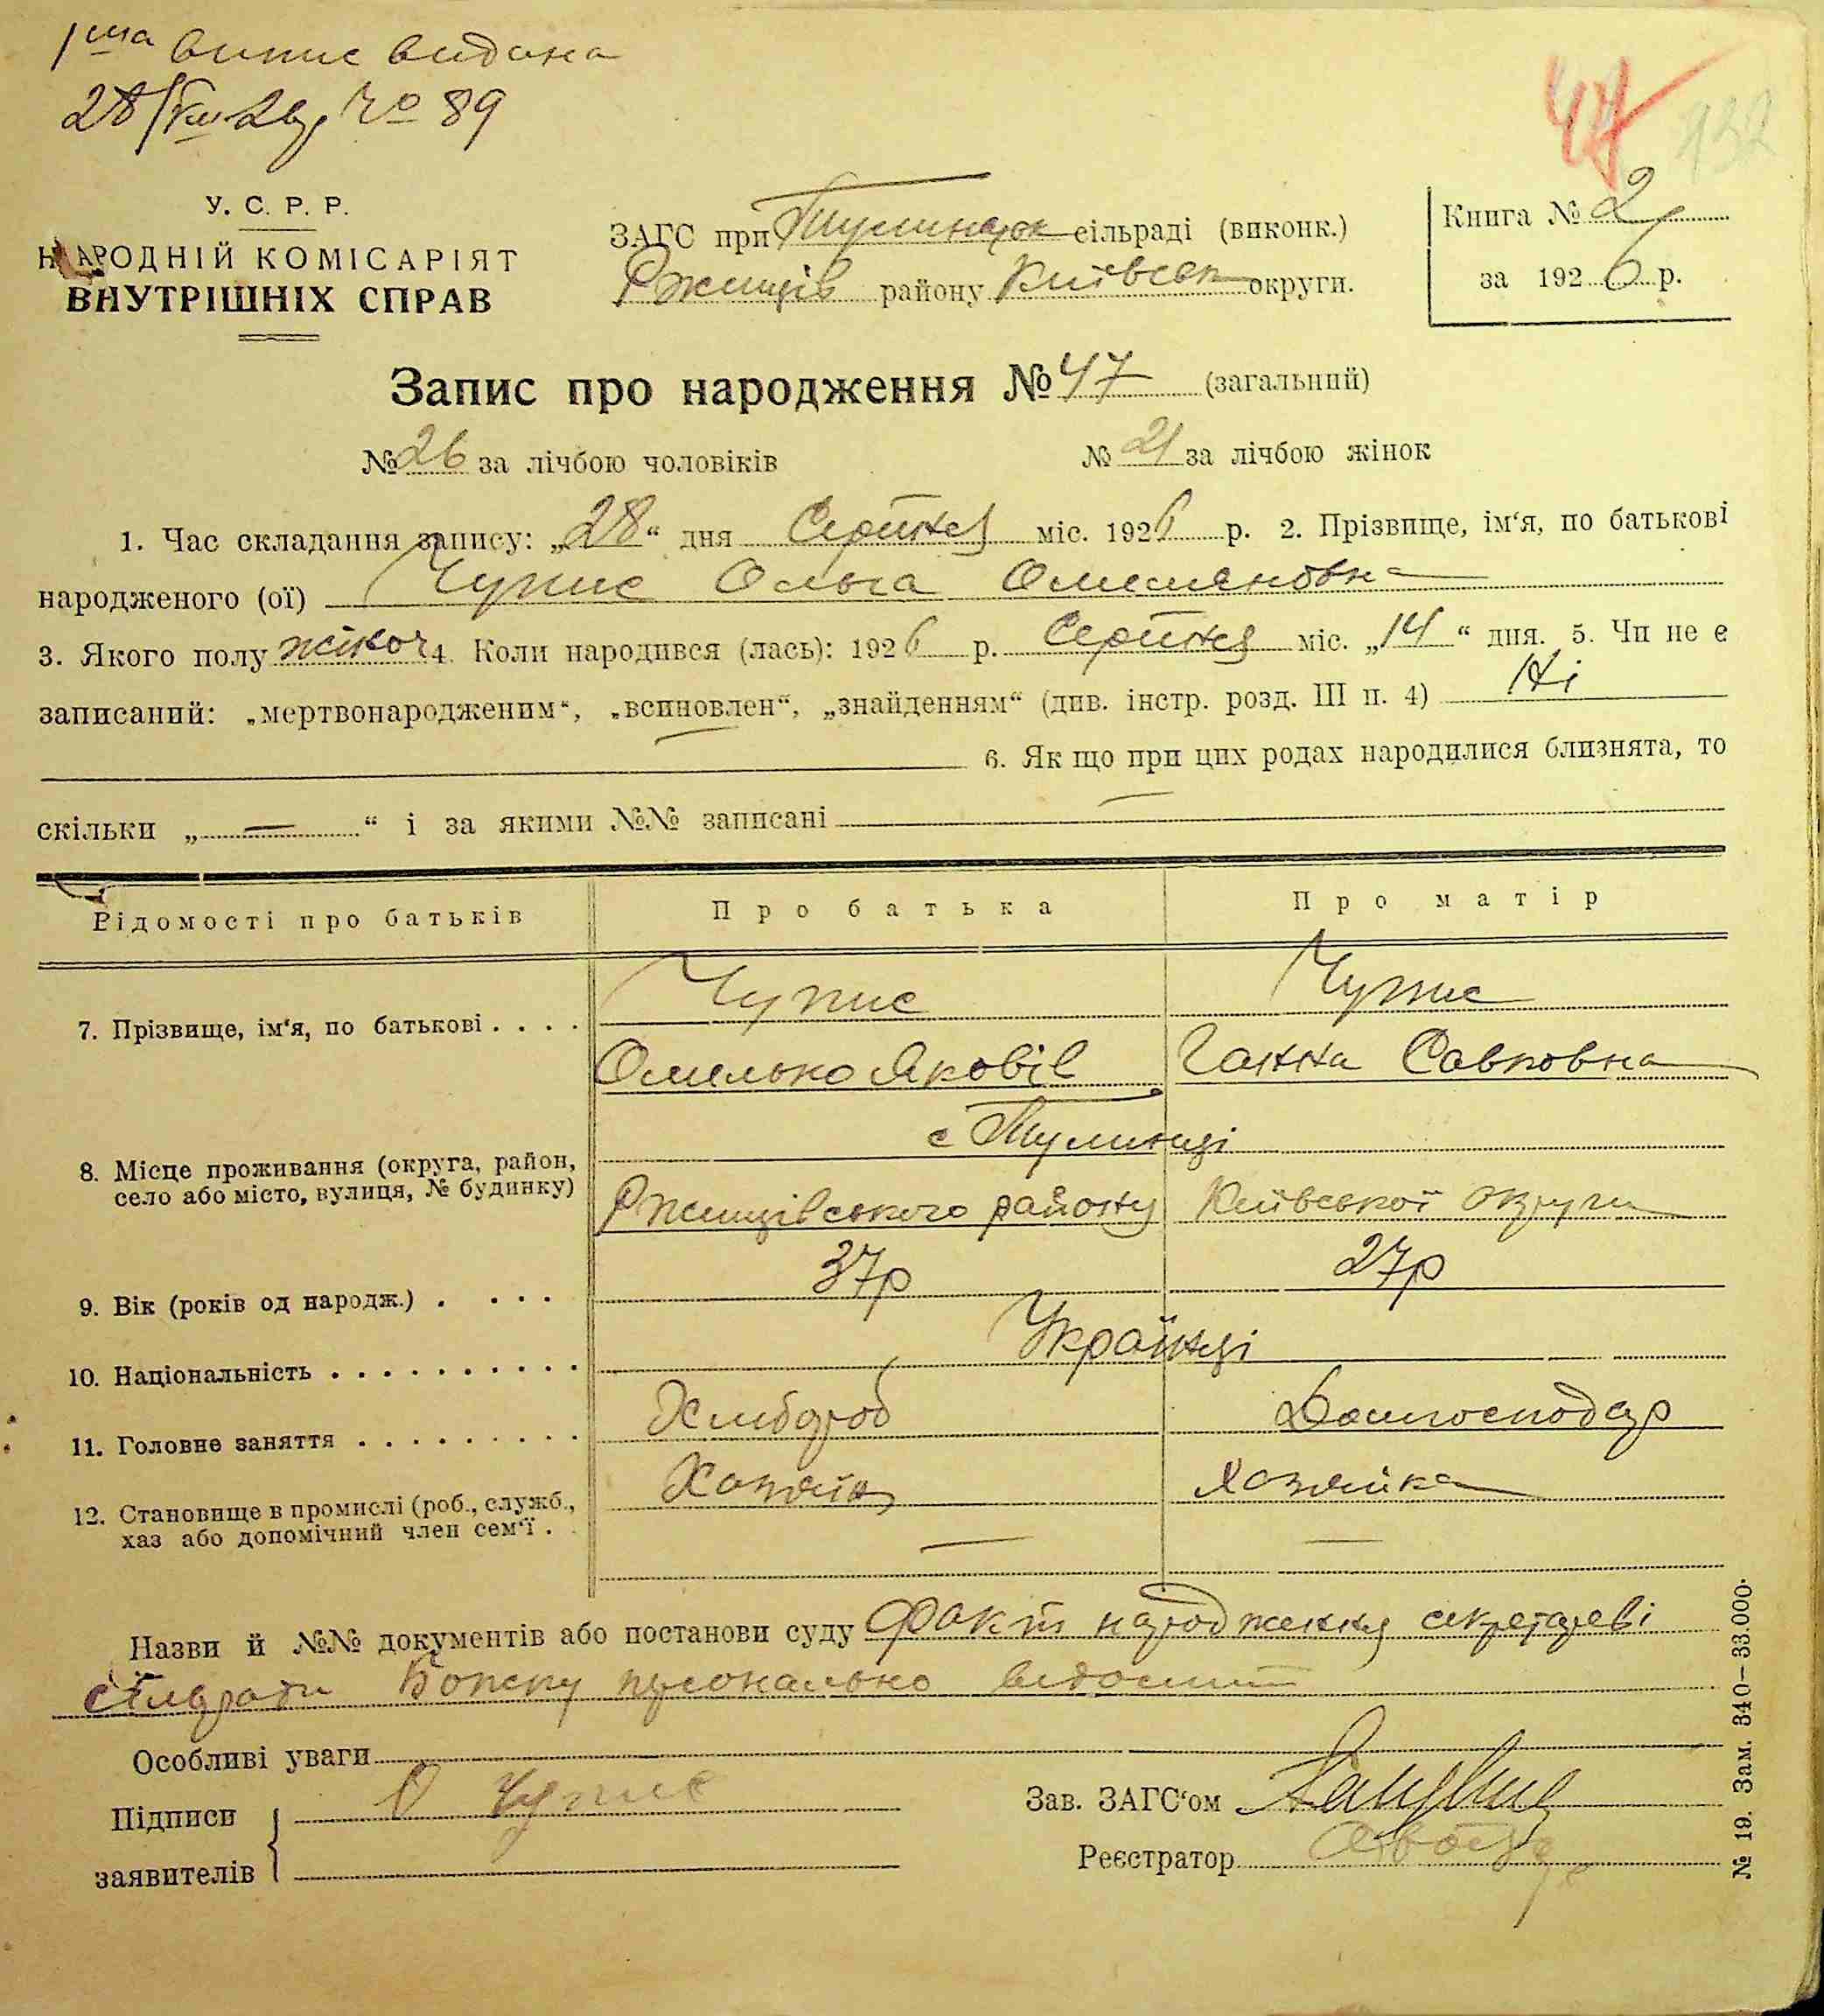 1ша випис видана
28/VIII-26р № 89
47 132
У. С. Р. Р.
НАРОДНІЙ КОМІСАРІЯТ
ВНУТРІШНІХ СПРАВ
ЗАГС при Тулинцях сільраді (виконк.)
Ржищів району Київськ округи.
Книга № 2
за 1926 р.
Запис про народження № 47 (загальний)
№ 26 за лічбою чоловіків № 21 за лічбою жінок
1. Час складання запису: „28“ дня Серпня міс. 1926 р. 2. Прізвище, ім‘я, по батькові
народженого (ої) Чупис Ольга Омеляновна
3. Якого полу жіноч 4. Коли народився (лась): 1926 р. Серпня міс. „14“ дня. 5. Чи не є
записаний: „мертвонародженим“, „всиновлен“, „знайденням“ (див. інстр. розд. III п. 4) Ні
6. Як що при цих родах народилися близнята, то
скільки „ — “ і за якими №№ записані —
Відомості про батьків Про батька Про матір
7. Прізвище, ім‘я, по батькові . . . . Чупис Чупис
Омелько Яковів Ганна Савковна
с Тулинці
8. Місце проживання (округа, район,
село або місто, вулиця, № будинку) Ржищівського району Київської округи
9. Вік (років од народж.) . . . . 37р 27р
10. Національність . . . . . . . . . . Українці
11. Головне заняття . . . . . . . . . Хлибороб Домгосподар
12. Становище в промислі (роб., служб., Хозяїн Хозяйка
хаз або допомічний член сем‘ї . — —
Назви й №№ документів або постанови суду Факт народження секретареві
сілради персонально відомий
Особливі уваги
Підписи О Чупис Зав. ЗАГС‘ом
заявителів Реєстратор
№ 19. Зам. 340—33.000.